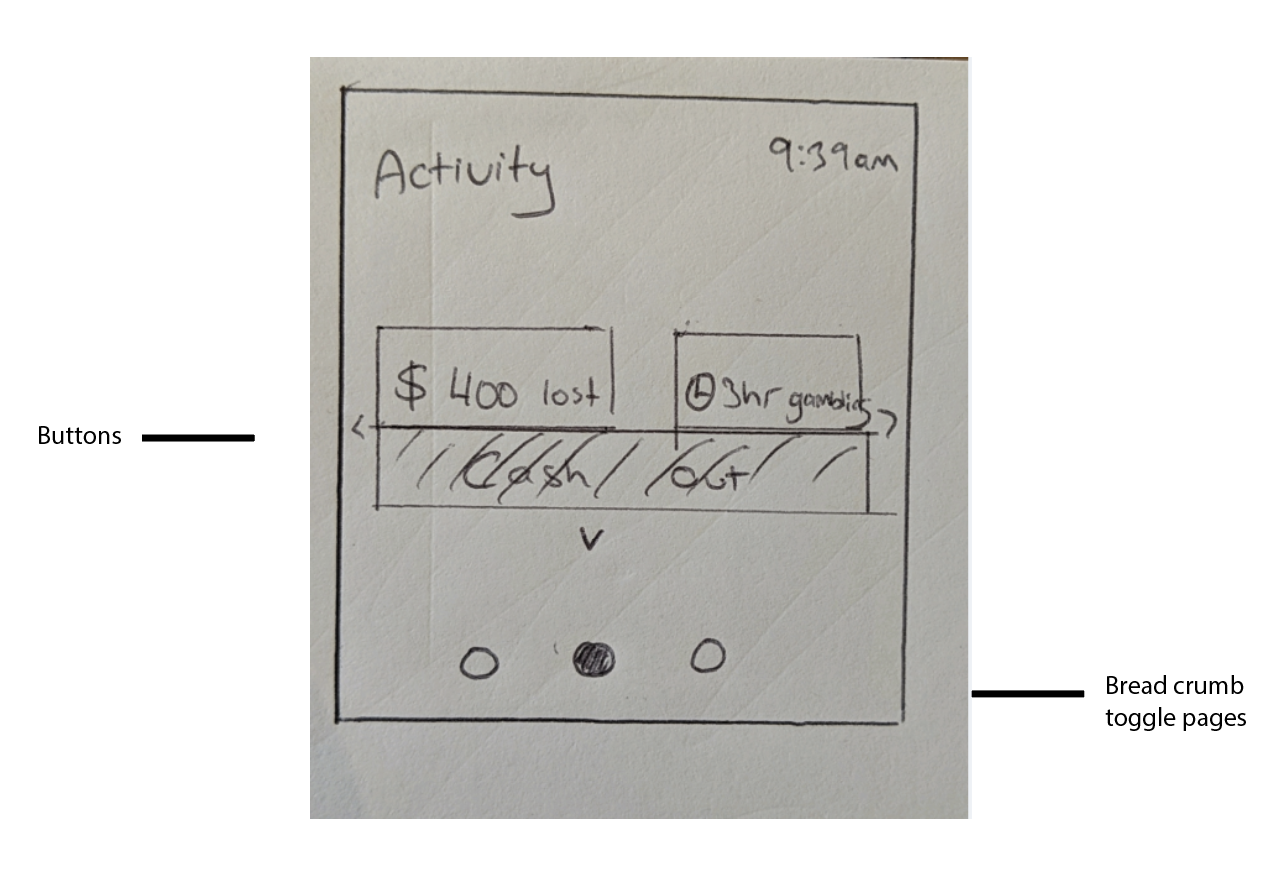 Activity
9:39am
$ 400 lost
3hr gambling
Cash out
Buttons
Bread crumb
toggle pages